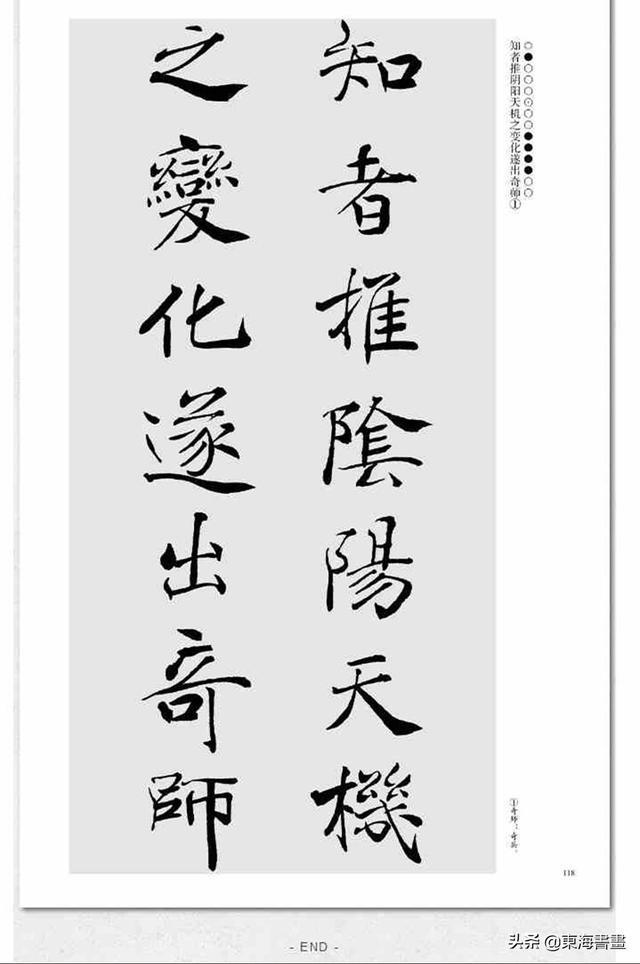 ○●○○○⊙○○●●●●○○
知者推阴阳天机之变化遂出奇师①
知者推陰陽天機
之變化遂出奇師
①奇师：奇兵。
118
- END -
头条 @東海書畫